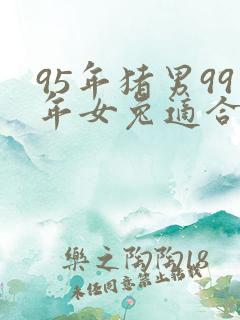 95年猪男99
年女兔適合
樂之陶陶18
未任同意禁止轉載